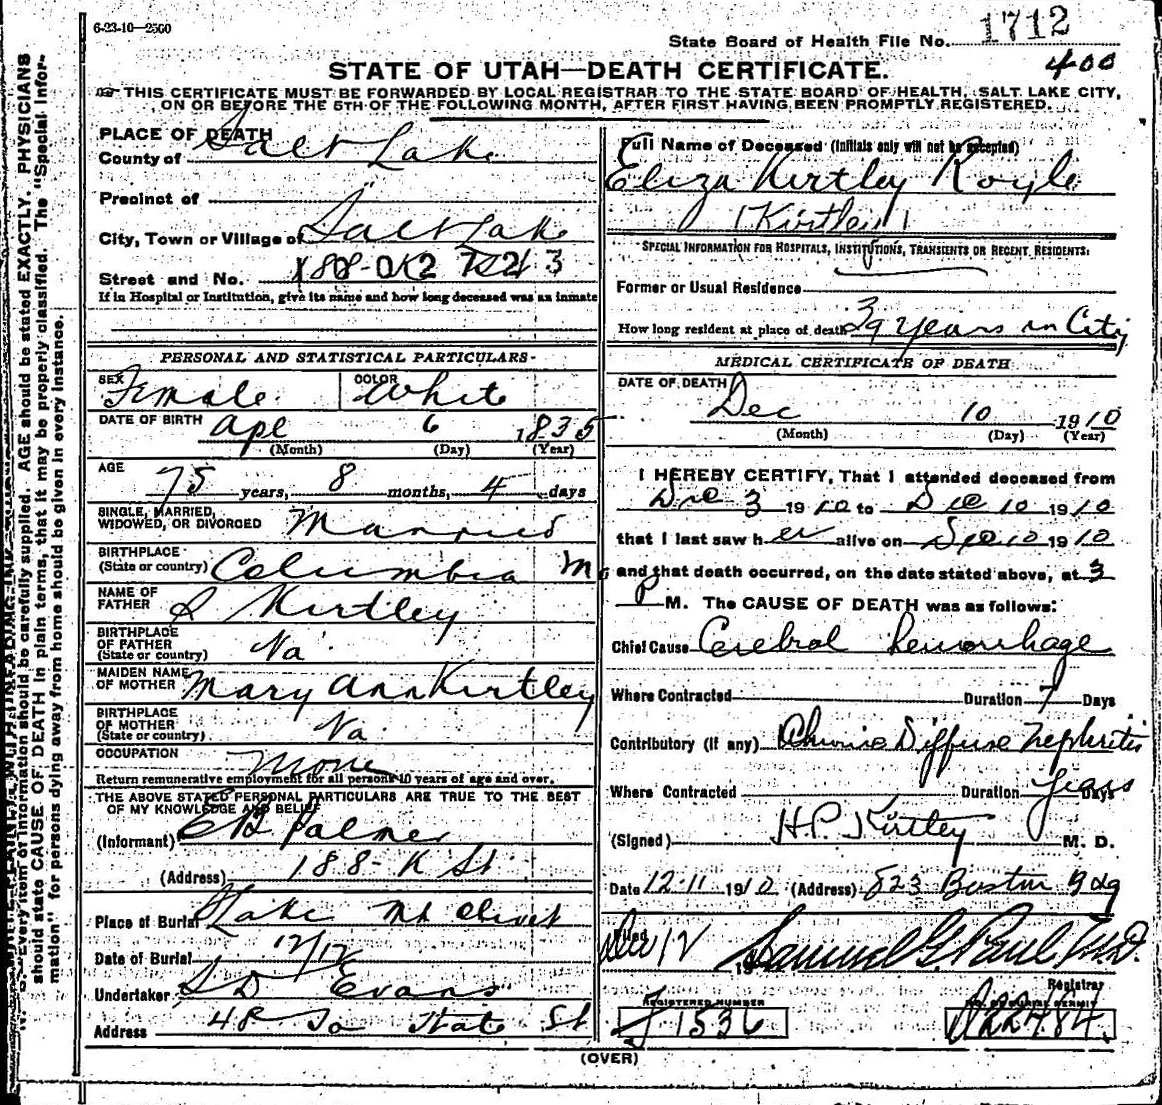 6-23-10—2500
State Board of Health File No. 1712
400
STATE OF UTAH—DEATH CERTIFICATE.
THIS CERTIFICATE MUST BE FORWARDED BY LOCAL REGISTRAR TO THE STATE BOARD OF HEALTH, SALT LAKE CITY,
ON OR BEFORE THE 5TH OF THE FOLLOWING MONTH, AFTER FIRST HAVING BEEN PROMPTLY REGISTERED.
PLACE OF DEATH
County of Salt Lake
Precinct of
City, Town or Village of Salt Lake
Street and No. 188-K
If in Hospital or Institution, give its name and how long deceased was an inmate
PERSONAL AND STATISTICAL PARTICULARS-
SEX Female COLOR White
DATE OF BIRTH Apl 6 1835
(Month) (Day) (Year)
AGE
75 years, 8 months, 4 days
SINGLE, MARRIED,
WIDOWED, OR DIVORCED Married
BIRTHPLACE
(State or country) Columbia Mo
NAME OF
FATHER S Kirtley
BIRTHPLACE
OF FATHER
(State or country) Va
MAIDEN NAME
OF MOTHER Mary Ann Kirtley
BIRTHPLACE
OF MOTHER
(State or country) Va
OCCUPATION None
Return remunerative employment for all persons 10 years of age and over.
THE ABOVE STATED PERSONAL PARTICULARS ARE TRUE TO THE BEST
OF MY KNOWLEDGE AND BELIEF
(Informant) E B Palmer
(Address) 188-K St
Place of Burial Lake Mt Olivet
Date of Burial 12/12
Undertaker S D Evans
Address 48 So State St
Full Name of Deceased (Initials only will not be accepted)
Eliza Kirtley Royle
(Kirtley)
SPECIAL INFORMATION FOR HOSPITALS, INSTITUTIONS, TRANSIENTS OR RECENT RESIDENTS:
Former or Usual Residence
How long resident at place of death 39 years in City
MEDICAL CERTIFICATE OF DEATH
DATE OF DEATH
Dec 10 1910
(Month) (Day) (Year)
I HEREBY CERTIFY, That I attended deceased from
Dec 3 1910 to Dec 10 1910
that I last saw her alive on Dec 10 1910
and that death occurred, on the date stated above, at 3
P M. The CAUSE OF DEATH was as follows:
Chief Cause Cerebral hemorrhage
Where Contracted Duration 7 Days
Contributory (if any) Chronic Diffuse Nephritis
Where Contracted Duration years Days
(Signed) H.P. Kirtley M. D.
Date 12-11 1910 (Address) 823 Boston Bdg
Filed Dec 12 19 Samuel G. Paul, M.D.
Registrar
REGISTERED NUMBER
J 1536
D22484
(OVER)
Every item of information should be carefully supplied. AGE should be stated EXACTLY. PHYSICIANS
should state CAUSE OF DEATH in plain terms, that it may be properly classified. The "Special Infor-
mation" for persons dying away from home should be given in every instance.